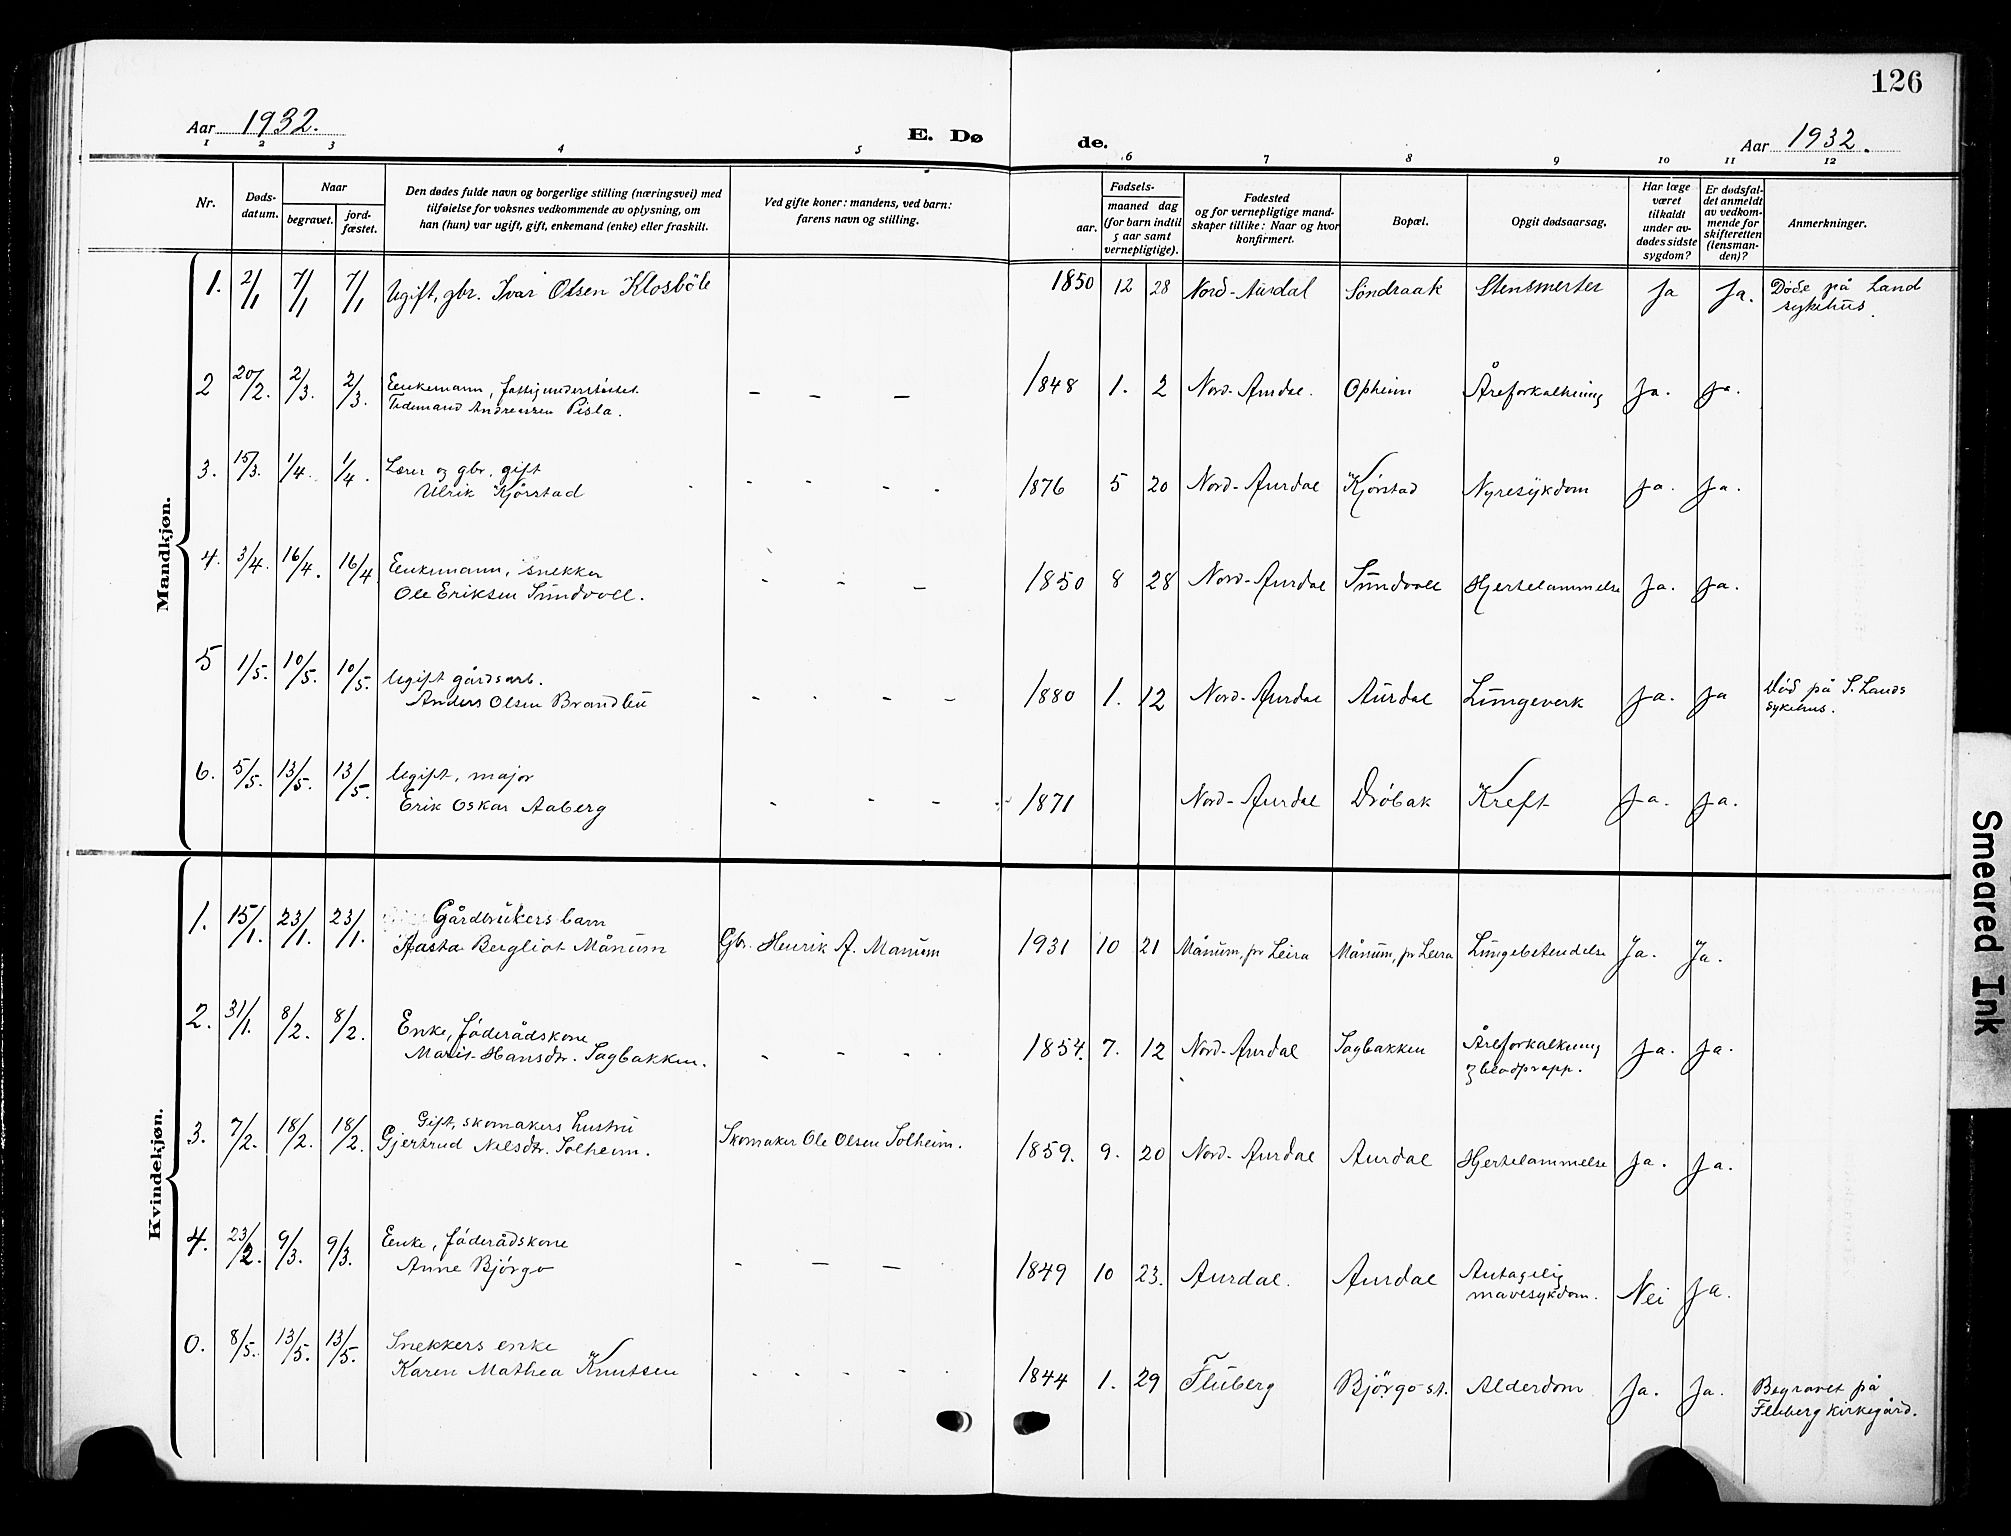 126
Aar 1932.
E. Dø de.
Aar 1932.
1 2 3 4 5 6 7 8 9 10 11 12
Nr.
Døds-
datum.
Naar
begravet.
jord-
fæstet.
Den dødes fulde navn og borgerlige stilling (næringsvei) med
tilføielse for voksnes vedkommende av oplysning, om
han (hun) var ugift, gift, enkemand (enke) eller fraskilt.
Ved gifte koner: mandens, ved barn:
farens navn og stilling.
Fødsels-
aar.
maaned dag
(for barn indtil
5 aar samt
vernepligtige).
Fødested
og for vernepligtige mand-
skaper tillike: Naar og hvor
konfirmert.
Bopæl.
Opgit dødsaarsag.
Har læge
været
tilkaldt
under av-
dødes sidste
sygdom?
Er dødsfal-
det anmeldt
av vedkom-
mende for
skifteretten
(lensman-
den)?
Anmerkninger.
Mandkjøn.
1. 2/1 7/1 7/1 Ugift, gbr. Ivar Olsen Klosbøle 1850 12 28 Nord-Aurdal Søndraak Stensmerter Ja Ja. Døde på Land
sykehus.
2 20/2. 2/3. 2/3. Enkemann, fattigunderstøttet.
Tidemand Andreasen Pisla. – – – 1848 1. 2 Nord-Aurdal. Opheim Åreforkalkning Ja. Ja.
3. 15/3. 1/4. 1/4. Lærer og gbr. gift
Ulrik Kjørstad - - - - 1876 5 20 Nord-Aurdal Kjørstad Nyresykdom Ja. Ja.
4. 3/4. 16/4. 16/4 Enkemann, snekker
Ole Eriksen Sundvoll. - - – 1850 8 28 Nord-Aurdal Sundvoll Hjertelammelse Ja. Ja.
5 1/5. 10/5. 10/5. Ugift gårdsarb.
Anders Olsen Brandbu - - - - 1880 1. 12 Nord-Aurdal Aurdal Lungeverk Ja. Ja Død på S. Lands
sykehus.
6. 5/5. 13/5. 13/5. Ugift, major
Erik Oskar Aaberg - - - 1871 Nord-Aurdal Drøbak Kreft Ja. Ja.
Kvindekjøn.
1. 15/1. 23/1. 23/1. Gårdbrukers barn
Aasta Bergliot Månum Gbr. Henrik A. Manum 1931 10 21 Månum, pr Leira Månum, pr Leira Lungebetendelse Ja. Ja.
2. 31/1. 8/2. 8/2. Enke, føderådskone
Marit Hansdtr. Sagbakken. - - - - 1854. 7. 12 Nord-Aurdal Sagbakken Åreforkalkning
og blodpropp. Ja. Ja.
3. 7/2. 18/2. 18/2. Gift, skomakers hustru
Gjertrud Nilsdtr. Solheim. Skomaker Ole Olsen Solheim. 1859. 9. 20 Nord-Aurdal Aurdal Hjertelammelse Ja. Ja.
4. 23/2. 9/3. 9/3. Enke, føderådskone
Anne Bjørgo – – – 1849 10 23. Aurdal. Aurdal Antagelig
mavesykdom. Nei Ja.
0. 8/5. 13/5. 13/5. Snekkers enke
Karen Mathea Knutsen - - - - - 1844 1. 29 Fluberg Bjørgo st. Alderdom Ja. Ja. Begravet på
Fluberg kirkegård.
Smeared Ink